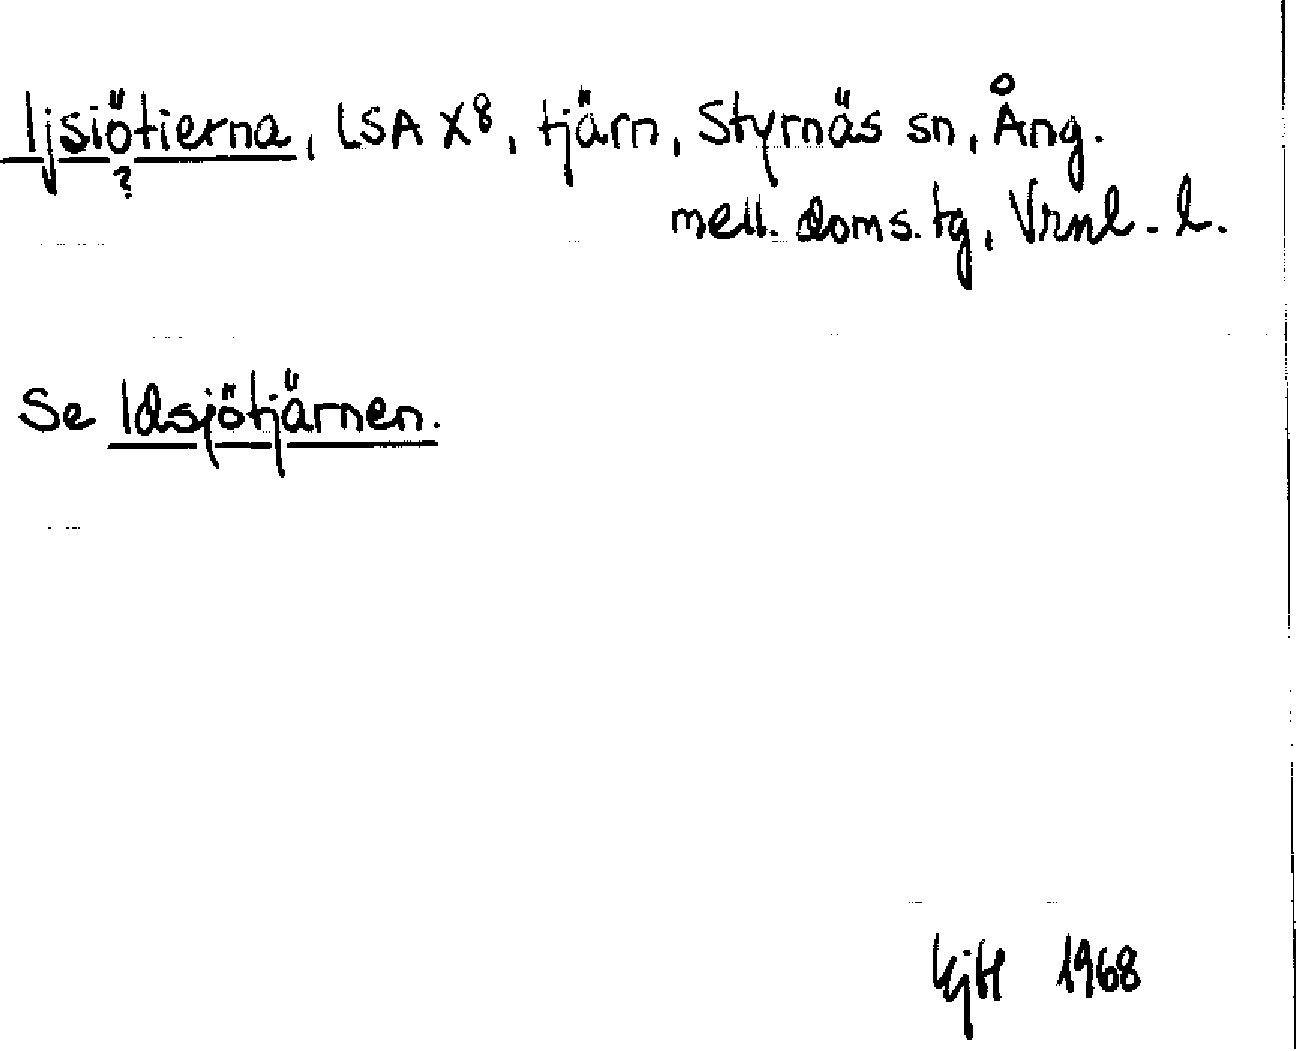 Ijsiötierna, LSA X8, tjärn, Styrnäs sn, Ång.
?
mell. doms. tg, Vrnl. l.
Se Idsjötjärnen.
1968